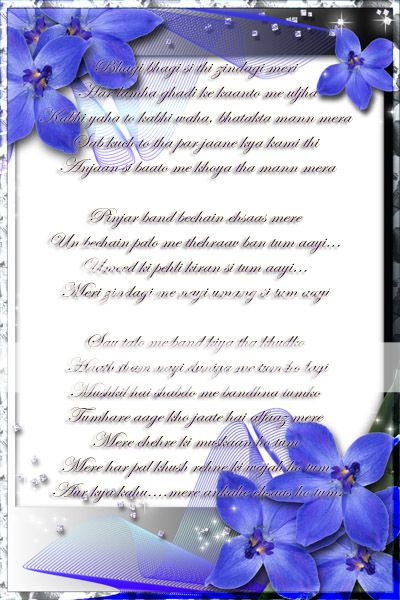 Bhagi bhagi si thi zindagi meri
Har lamha ghadi ke kaanto me uljha
Kabhi yaha to kabhi waha, bhatakta mann mera
Sab kuch to tha par jaane kya kami thi
Anjaan si baato me khoya tha mann mera
Pinjar band bechain ehsaas mere
Un bechain palo me thehraav ban tum aayi...
Umeed ki pehli kiran si tum aayi...
Meri zindagi me nayi umang si tum aayi
Sau talo me band kiya tha khudko
nayi duniya me tum ho
Mushkil hai shabdo me bandhna tumko
Tumhare aage kho jaate hai alfaaz mere
Mere chehre ki muskaan ho tum
Mere har pal khush rehne ki wajah ho tum
Aur kya kahu....mere ankahe ehsaas ho tum.